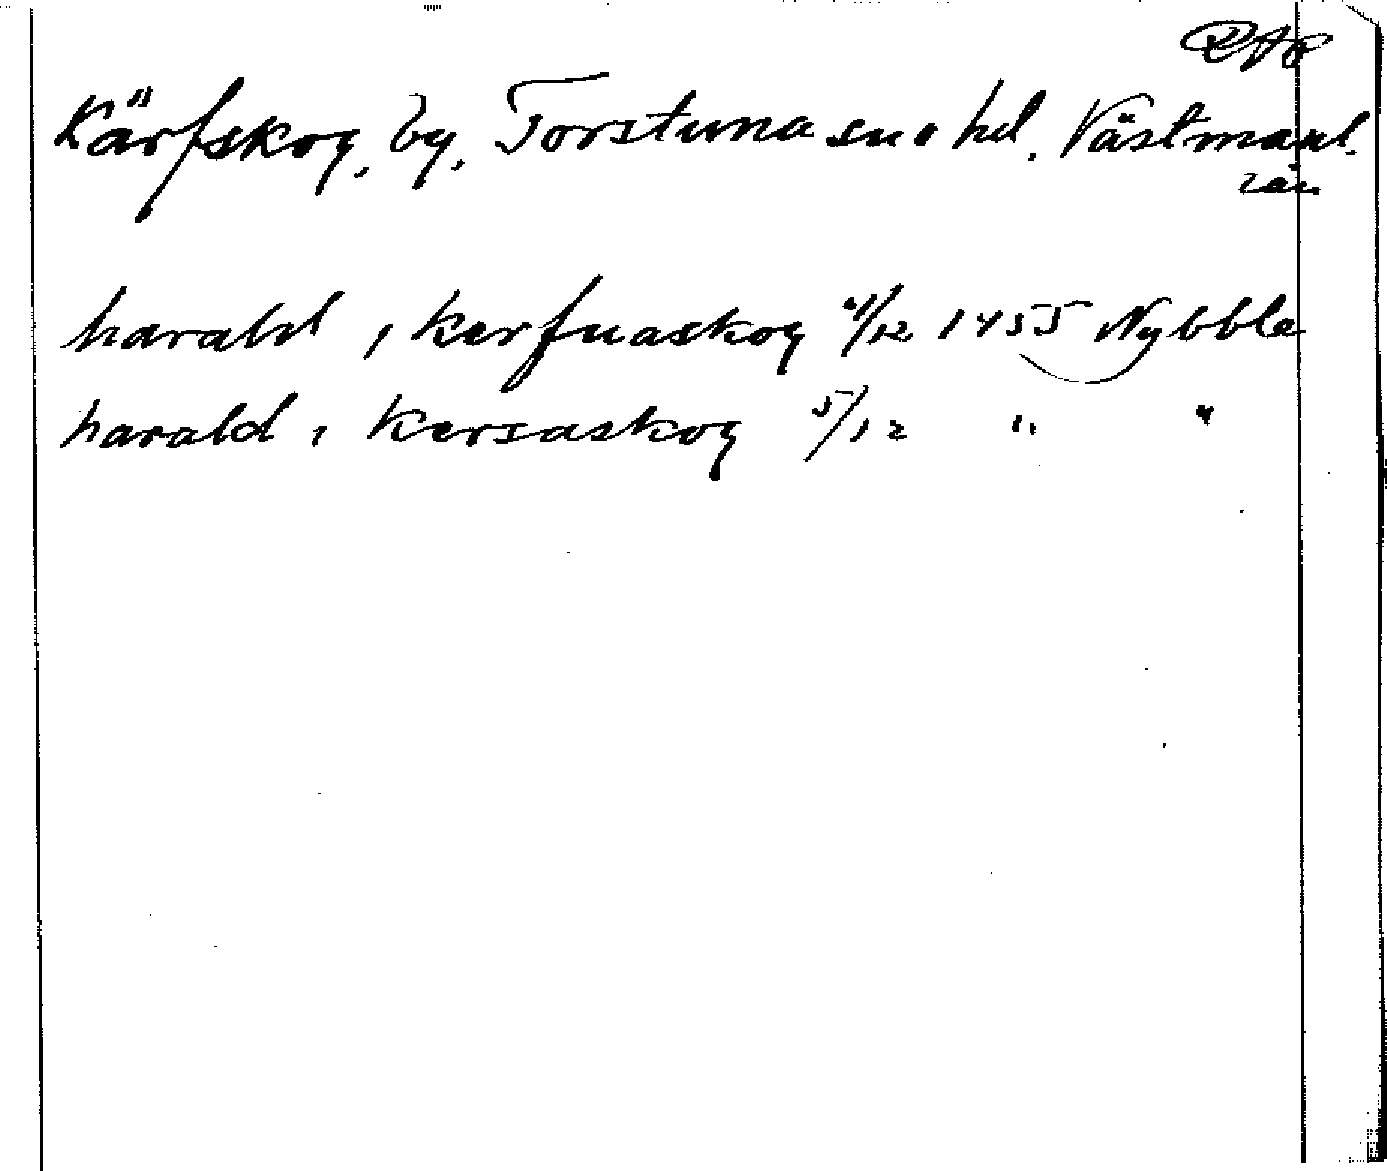 RAP
Kärfskog, by, Torstuna sn o hd. Västmanl.
län
harald i kerfuaskog 4/12 1455 Nybble
harald i kersaskog 5/12 " "